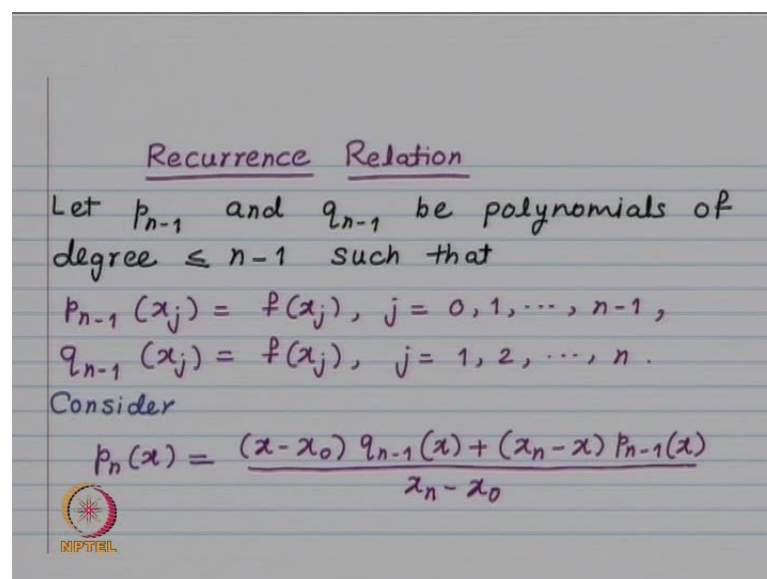 Recurrence Relation
Let p_{n-1} and q_{n-1} be polynomials of
degree ≤ n-1 such that
p_{n-1} (x_j) = f(x_j), j = 0, 1, ..., n-1,
q_{n-1} (x_j) = f(x_j), j = 1, 2, ..., n.
Consider
p_n(x) = ((x-x_0) q_{n-1}(x) + (x_n-x) p_{n-1}(x)) / (x_n - x_0)
NPTEL